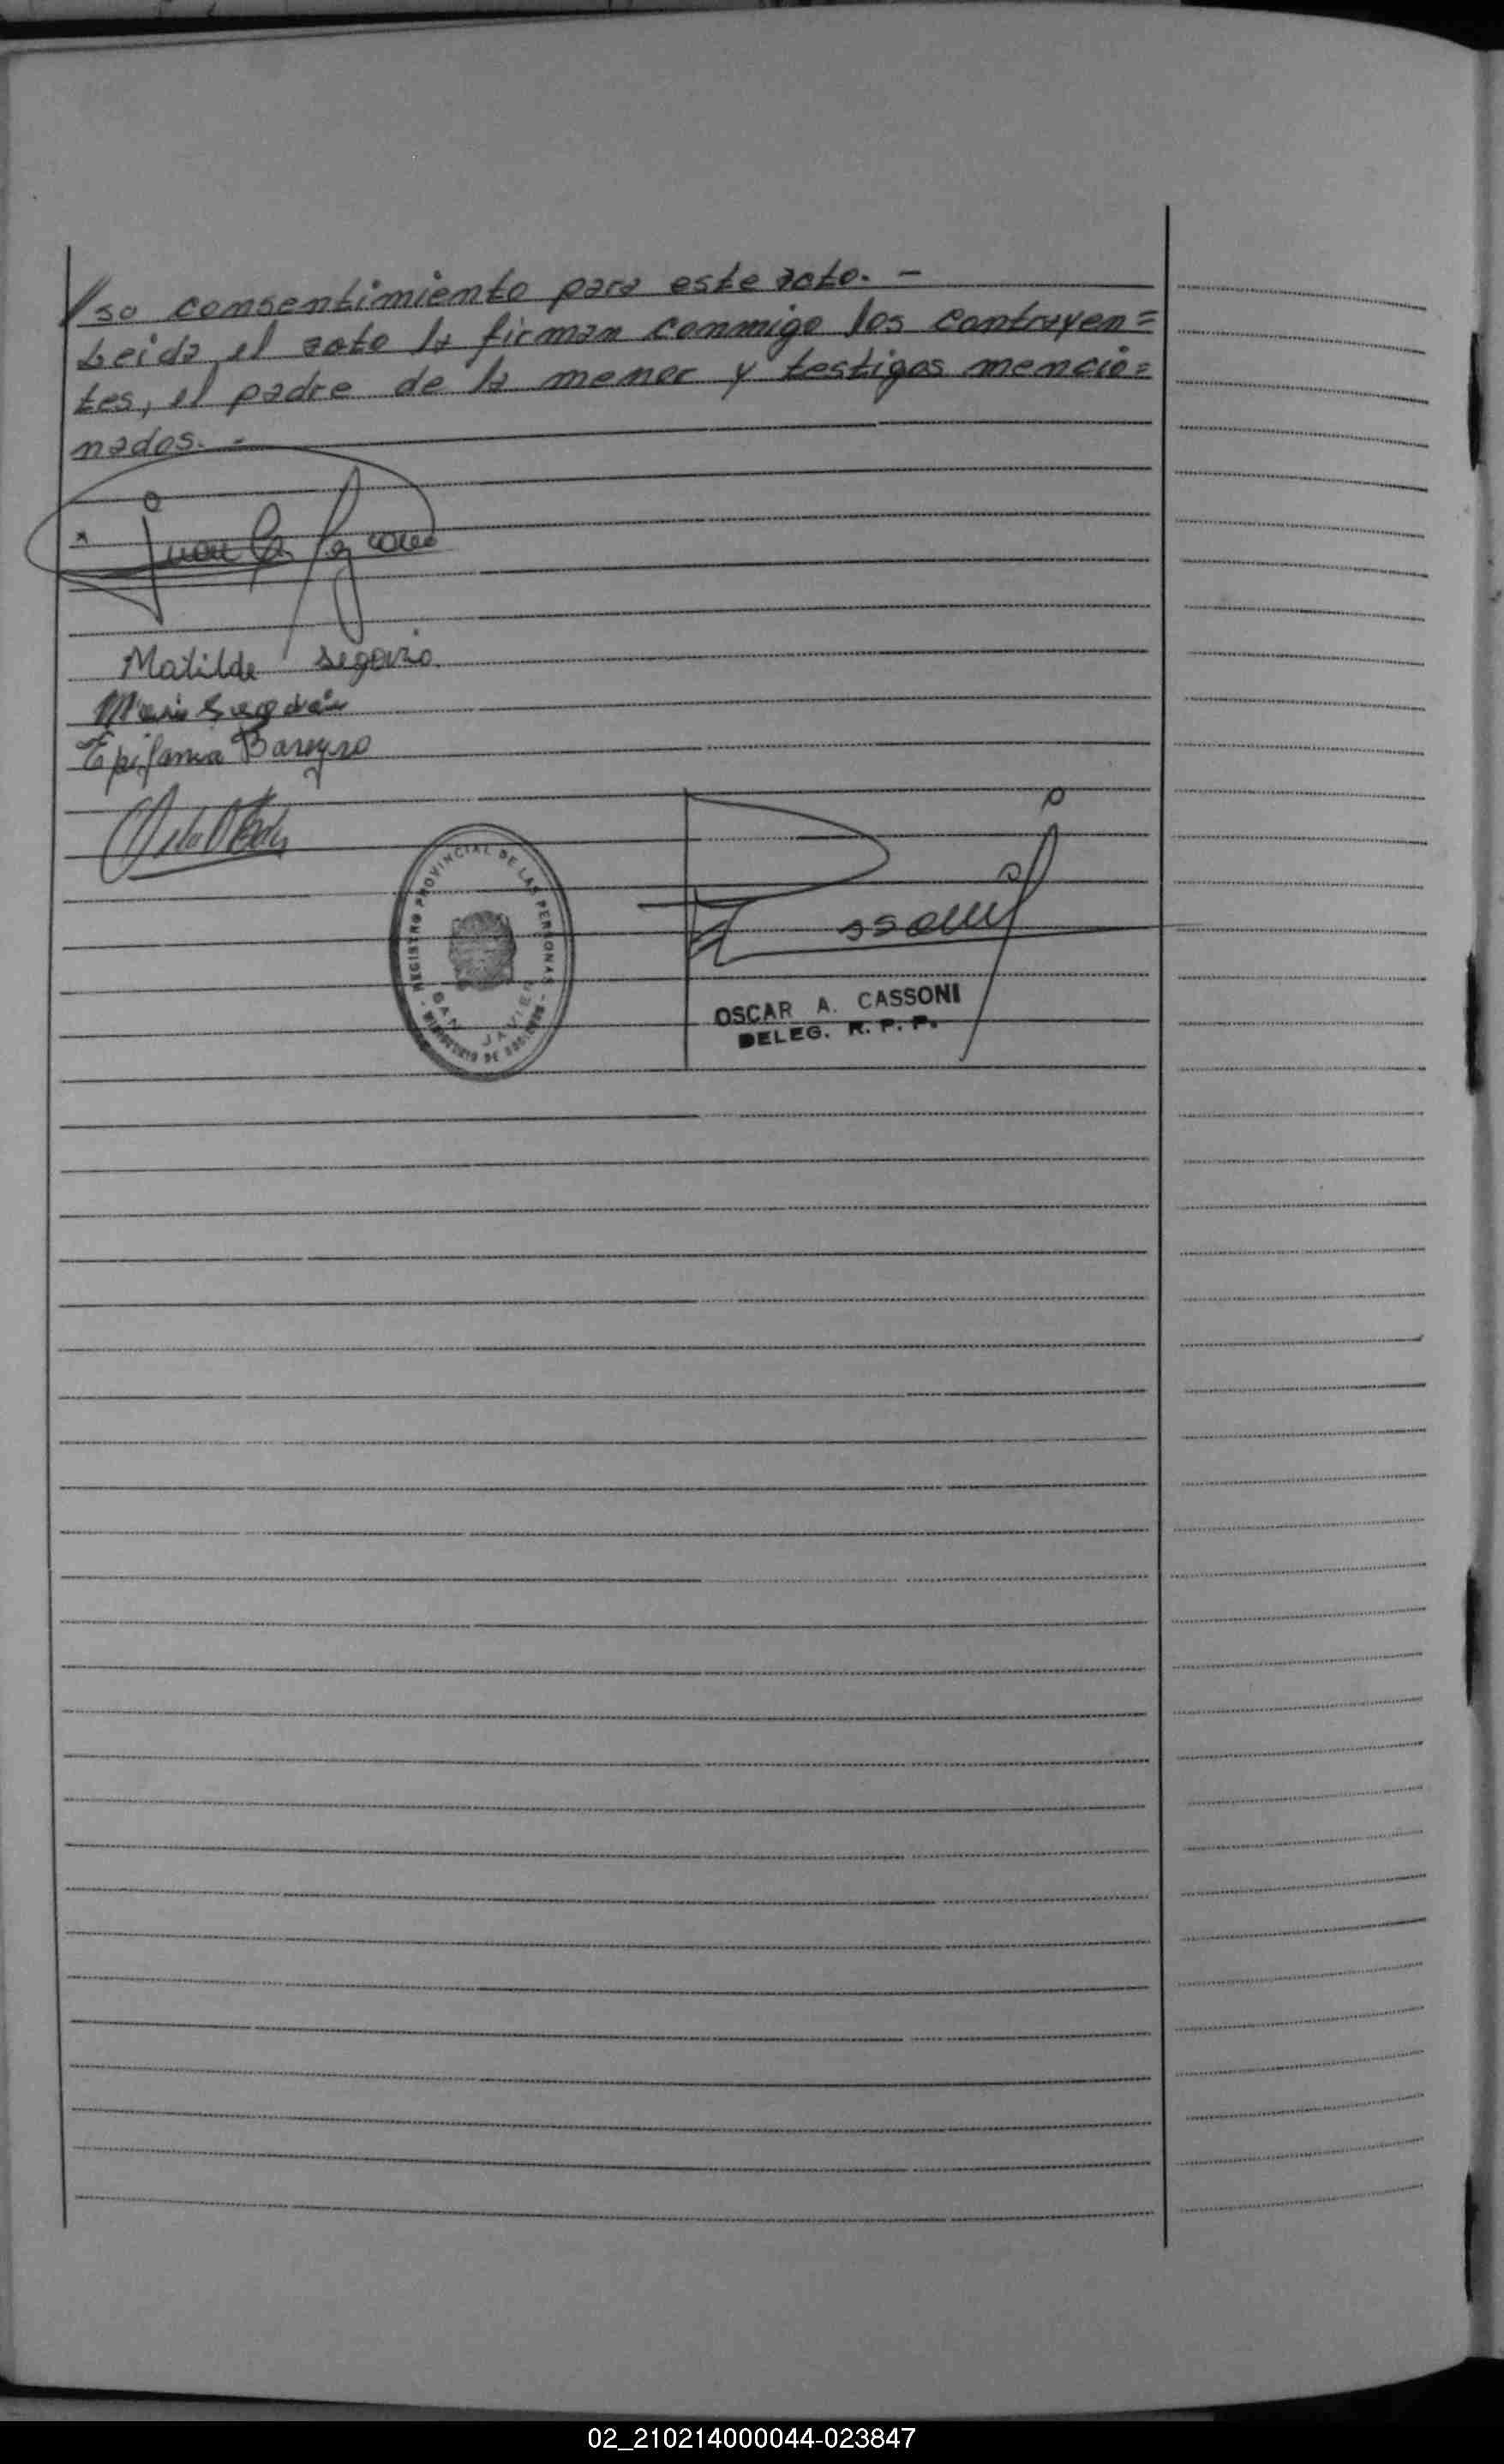 /su consentimiento para este acto. -
Leída el acta la firman conmigo los contrayen=
tes, el padre de la menor y testigos mencio=
nados. -
Juan
Matilde Segovia
Epifania Bareyro
REGISTRO PROVINCIAL DE LAS PERSONAS
SAN JAVIER
OSCAR A. CASSONI
DELEG. R. P. P.
02_210214000044-023847